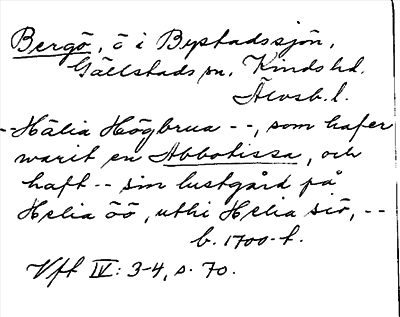 Bergö, ö i Bystadssjön,
Gällstads sn. Kinds hd.
Älvsb. l.
--Hälia Högbrua --, som hafer
warit en Abbotissa, och
haft -- sin lustgård på
Helia öö, uthi Helia siö, --
b. 1700-t.
Vft IV: 3-4, s. 70.